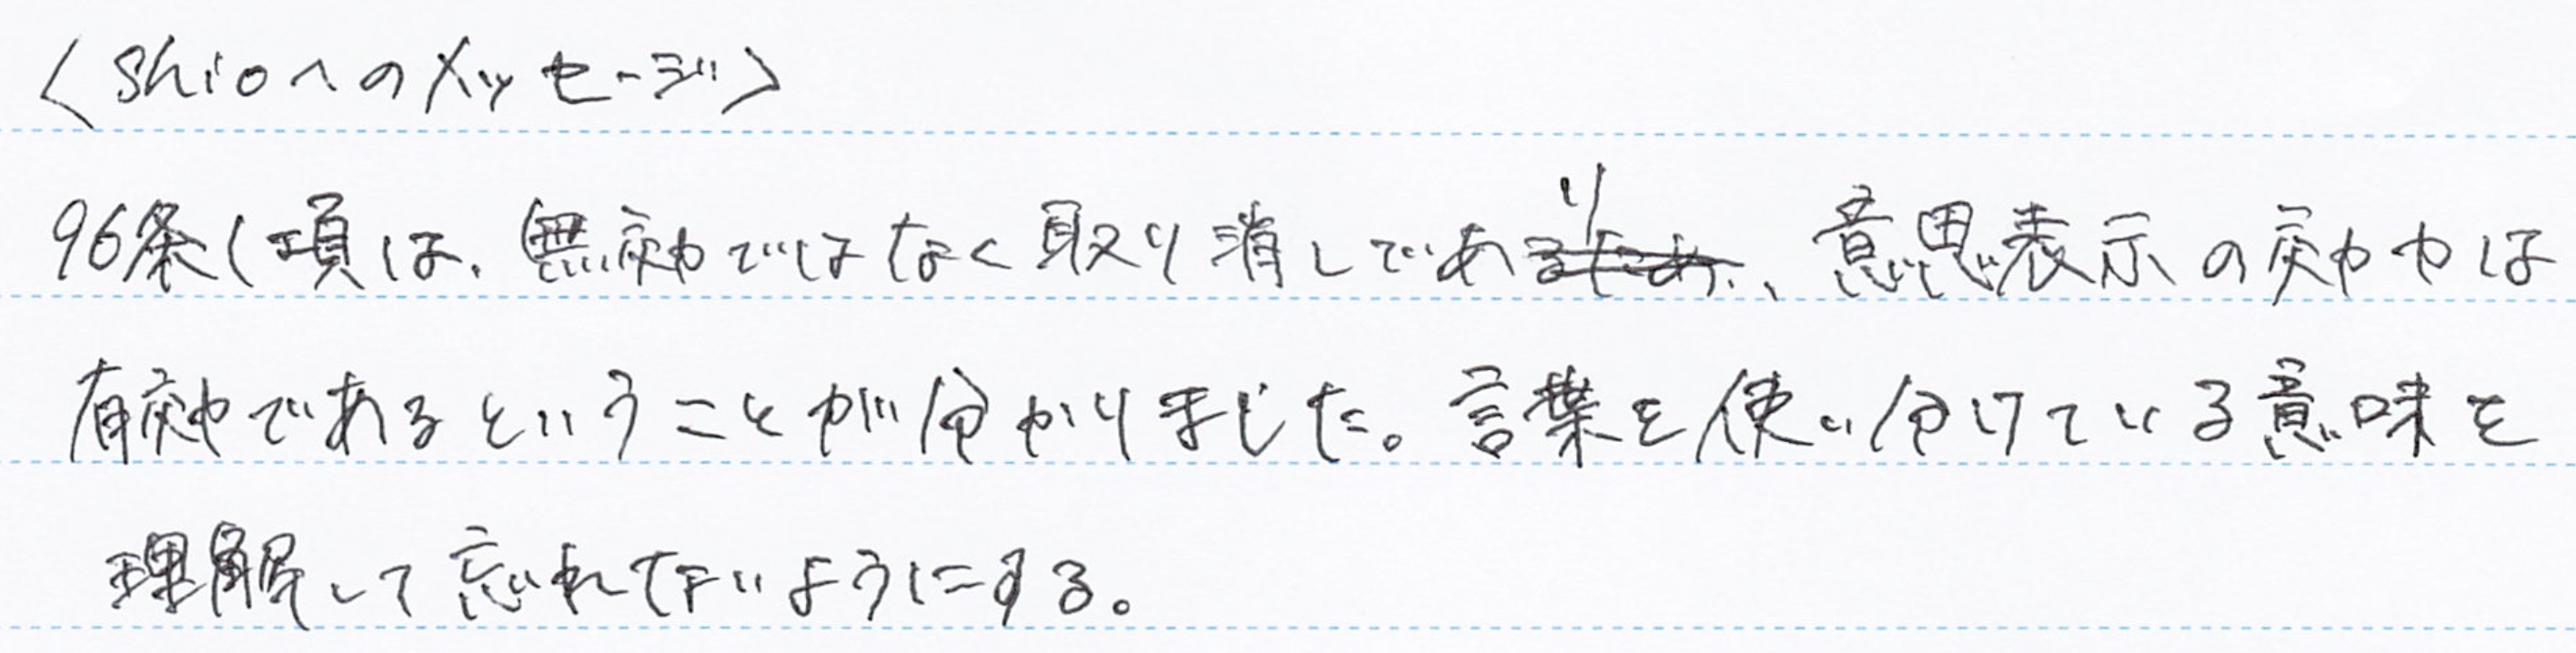 〈shioへのメッセージ〉
96条1項は、無効ではなく取り消しであり、意思表示の効力は
有効であるということが分かりました。言葉を使い分けている意味を
理解して忘れないようにする。